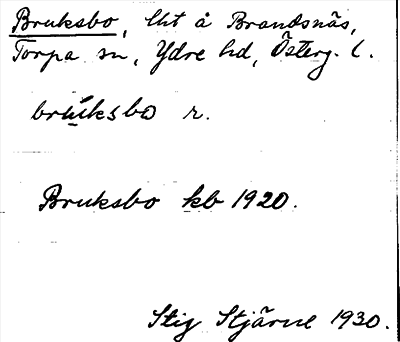 Bruksbo, lht å Brandsnäs,
Torpa sn, Ydre hd, Österg. l.
brúksbo r.
Bruksbo kb 1920.
Stig Stjärne 1930.